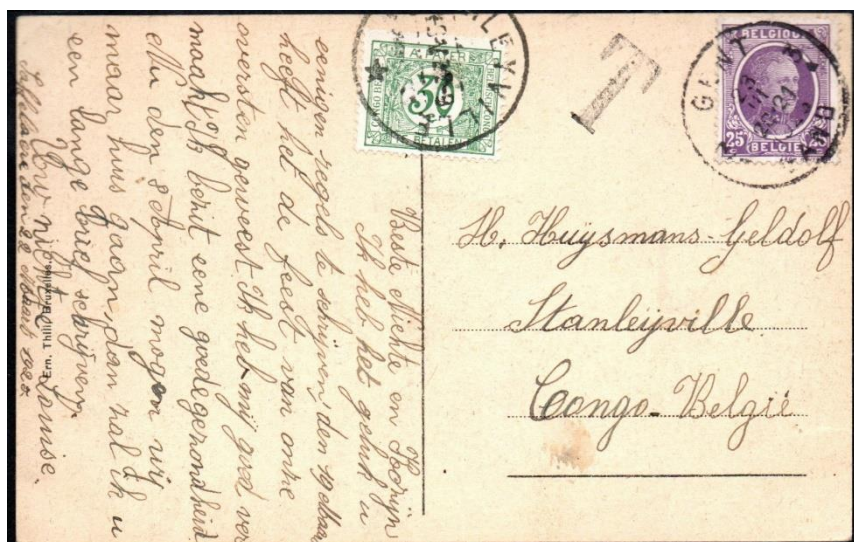 BELGIQUE
25 25
BELGIË
GENT
T
A PAYER
30
TE BETALEN
H. Huÿsmans-Geldolf
Stanleÿville
Congo-Belgïe
Beste Nichte en
Ik heb het geluk u
eenigen regels te schrijven, den
heeft het de feest van onze
oversten geweest. Ik heb mij goed ver
maakt. Ik bezit eene goede gezondheid.
Nu den 8 April mogen wij
naar huis gaan, dan zal ik u
een lange brief schrijven.
Uw nichtje Louise.
Ern. Thill, Bruxelles.